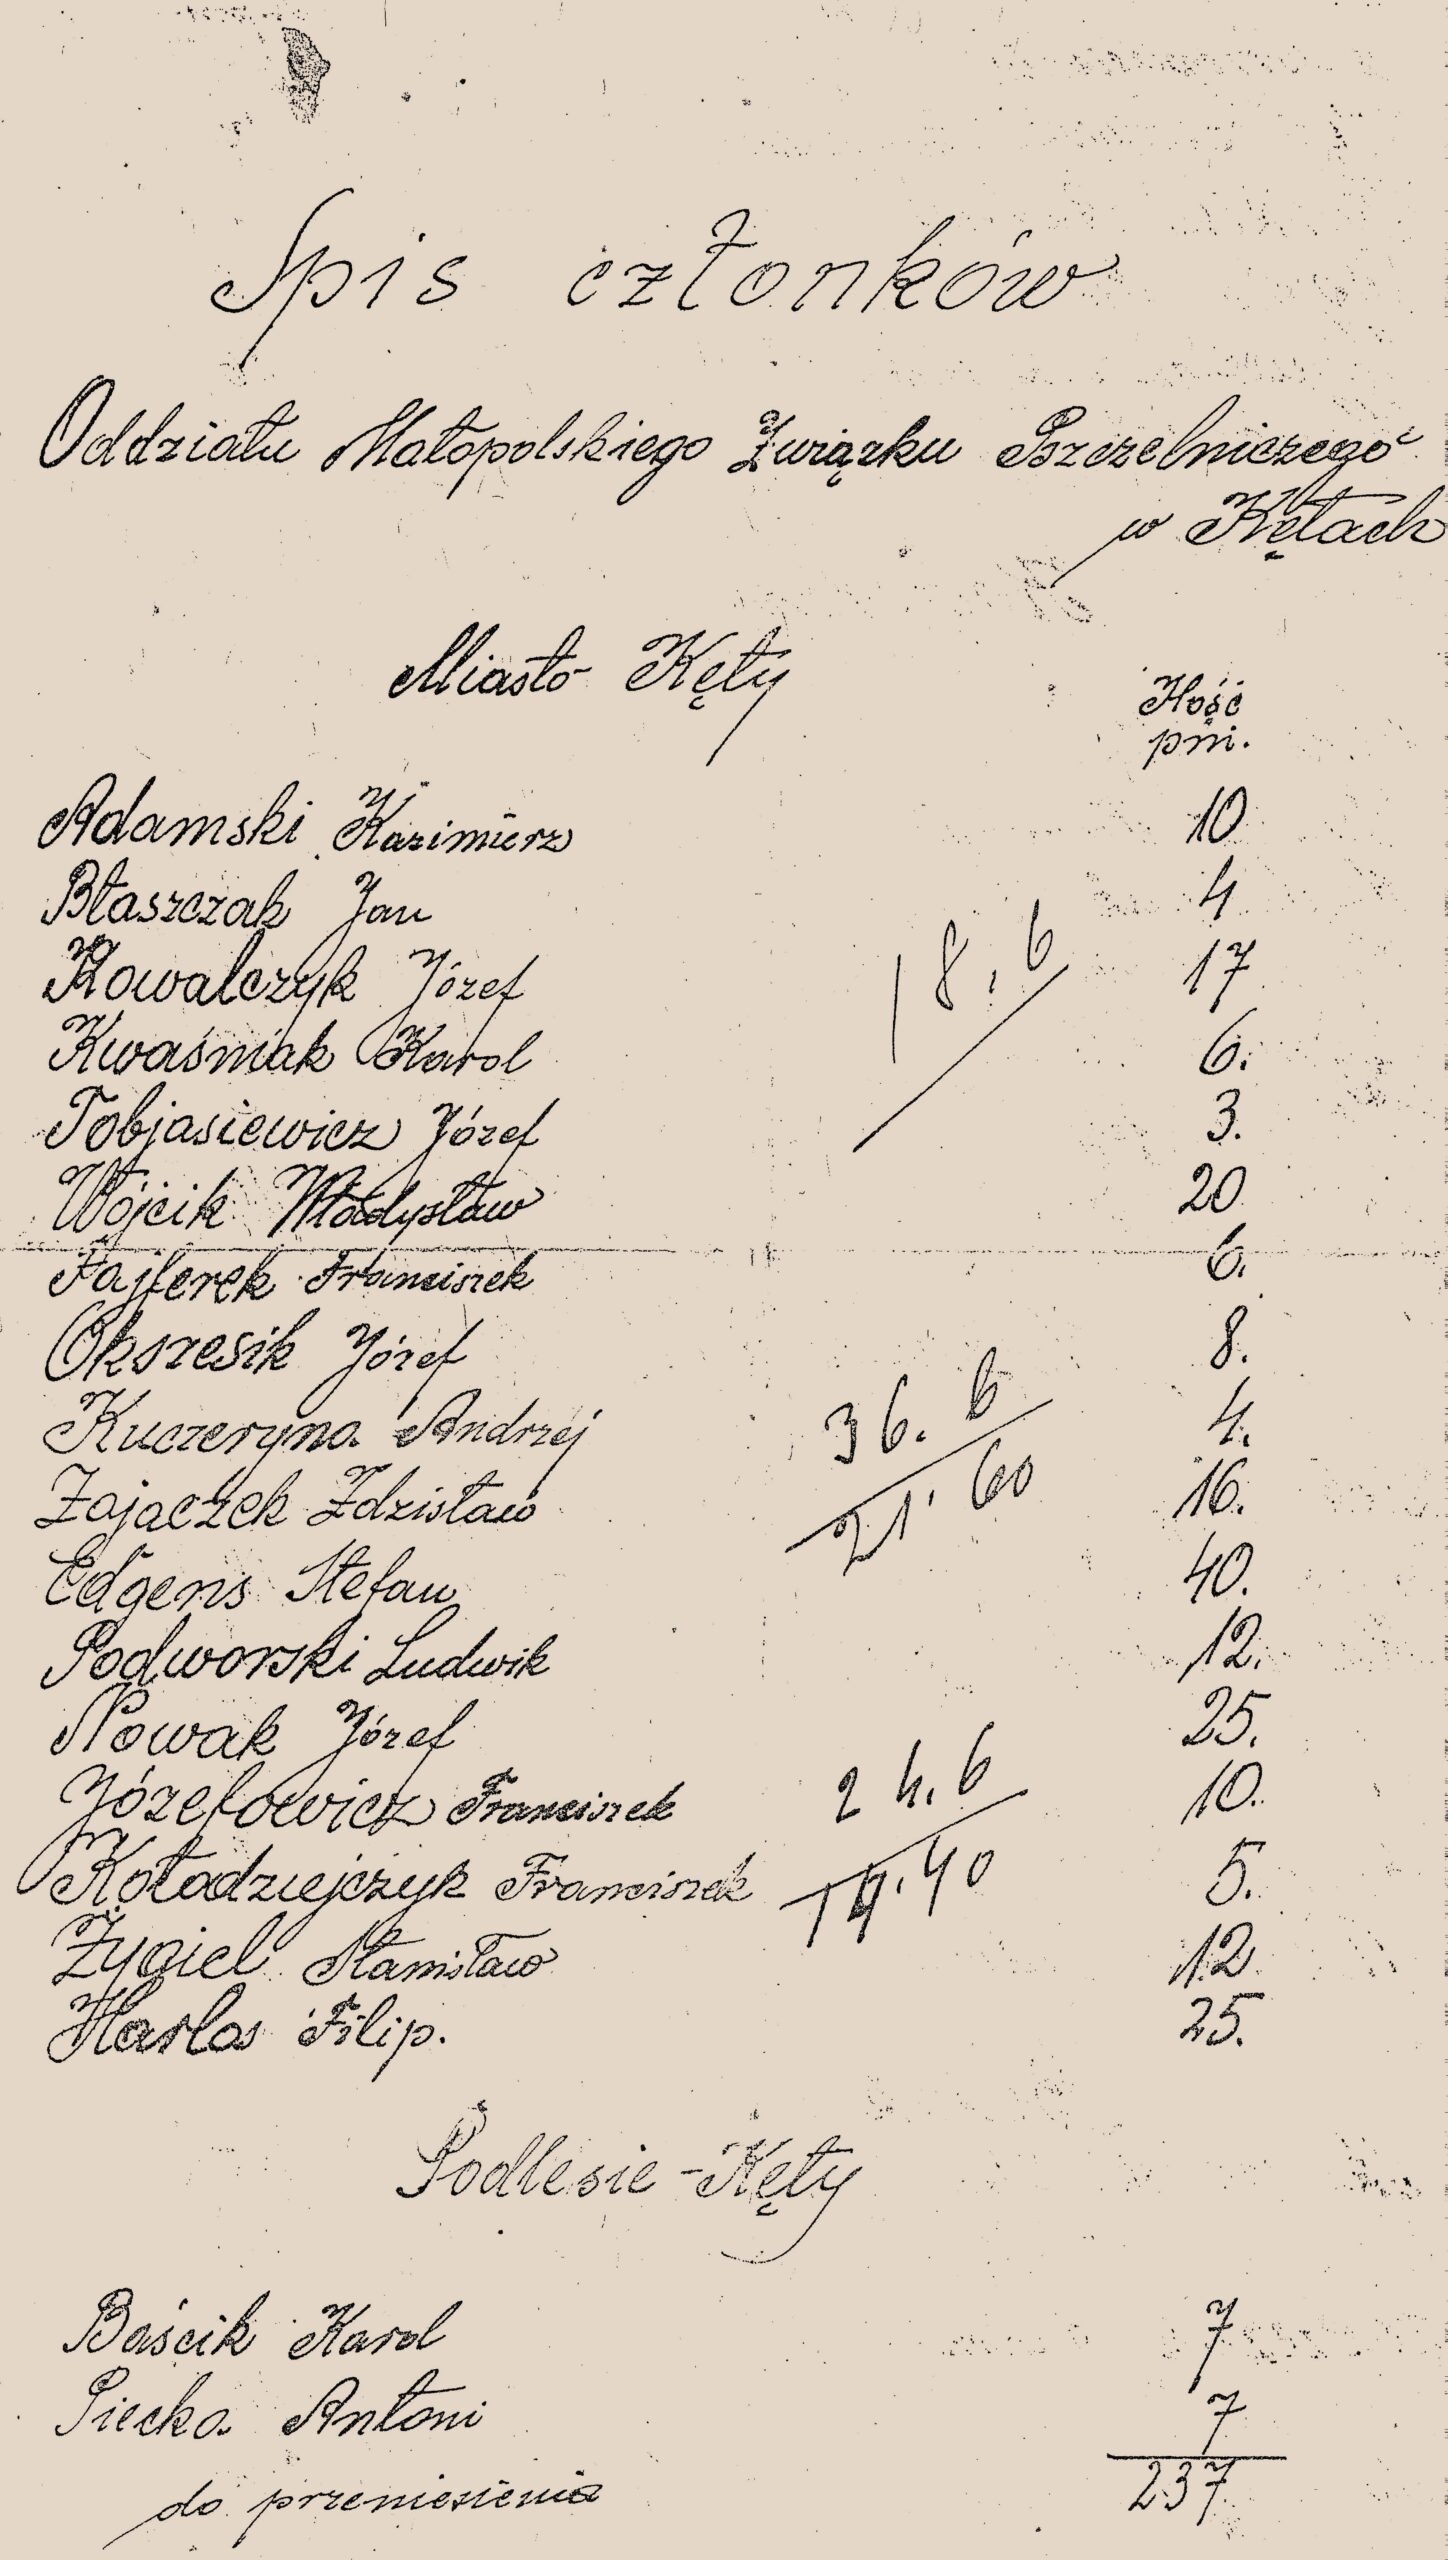 Spis członków
Oddziału Małopolskiego Związku Pszczelniczego
w Kętach
Miasto Kęty
Ilość
pni.
Adamski Kazimierz 10
Błaszczak Jan 4
Kowalczyk Józef 17
18.6
Kwaśniak Karol 6.
Tobjasiewicz Józef 3.
Wójcik Władysław 20
Fajferek Franciszek 6.
Okszesik Józef 8.
Kuczeryna Andrzej 4.
36.6
Zajaczek Zdzisław 16.
21.60
Edgens Stefan 40.
Podworski Ludwik 12.
Nowak Józef 25.
Józefowicz Franciszek 10.
24.6
Kołodziejczyk Franciszek 5.
14.40
Żygiel Stanisław 12
Harlos Filip. 25.
Podlesie-Kęty
Baścik Karol 7
Piecka Antoni 7
do przeniesienia 237